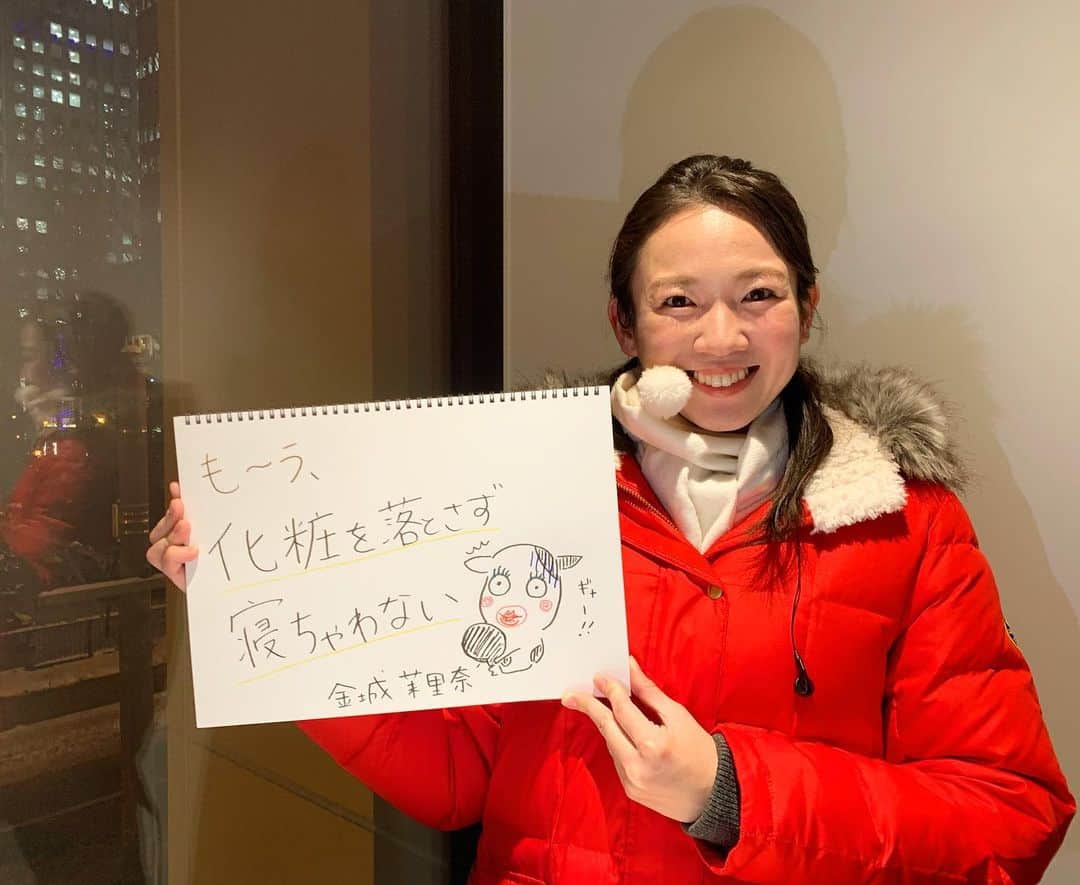 も～う、
化粧を落とさず
寝ちゃわない
ギャー!!
金城茉里奈